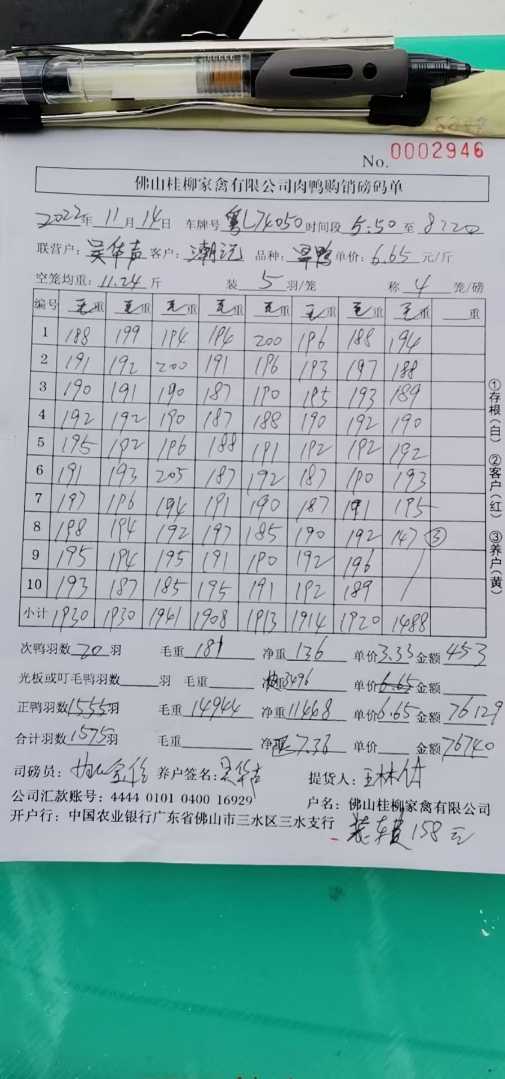 No. 0002946
佛山桂柳家禽有限公司肉鸭购销磅码单
2022年 11月 14日 车牌号 粤L74050 时间段 5:50 至
联营户: 吴华声 客户: 品种: 单价: 6.65 元/斤
空笼均重: 11.24 斤 装 5 羽/笼 称 4 笼/磅
编号 毛重 毛重 毛重 毛重 毛重 毛重 毛重 毛重 重
1 188 199 194 194 200 196 188 194
2 191 192 200 191 196 193 197 188
3 190 191 190 187 190 195 193 189
4 192 192 190 187 188 190 192 190
5 195 192 196 188 191 192 192 192
6 191 193 205 187 192 187 190 193
7 197 196 194 191 190 187 191 195
8 198 194 192 197 185 190 192 147 ③
9 195 194 195 191 190 192 196
10 193 187 185 195 191 192 189
小计 1930 1930 1941 1908 1913 1914 1920 1488
①存根(白) ②客户(红) ③养户(黄)
次鸭羽数 20 羽 毛重 181 净重 136 单价 3.33 金额 453
光板或叮毛鸭羽数 羽 毛重 3496 单价 6.65 金额
正鸭羽数 1555 羽 毛重 14944 净重 11468 单价 6.65 金额 76129
合计羽数 1575 羽 毛重 净重 7.36 单价 金额 76740
司磅员: 养户签名: 吴华声 提货人:
公司汇款账号: 4444 0101 0400 16929 户名: 佛山桂柳家禽有限公司
开户行: 中国农业银行广东省佛山市三水区三水支行 装车费 158 元